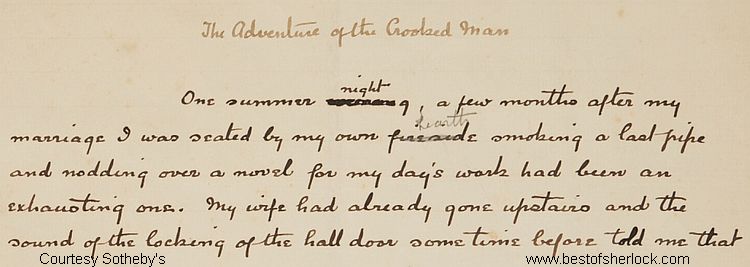 The Adventure of the Crooked Man
night
One summer evening, a few months after my
hearth
marriage I was seated by my own fireside smoking a last pipe
and nodding over a novel for my day's work had been an
exhausting one. My wife had already gone upstairs and the
sound of the locking of the hall door some time before told me that
Courtesy Sotheby's
www.bestofsherlock.com